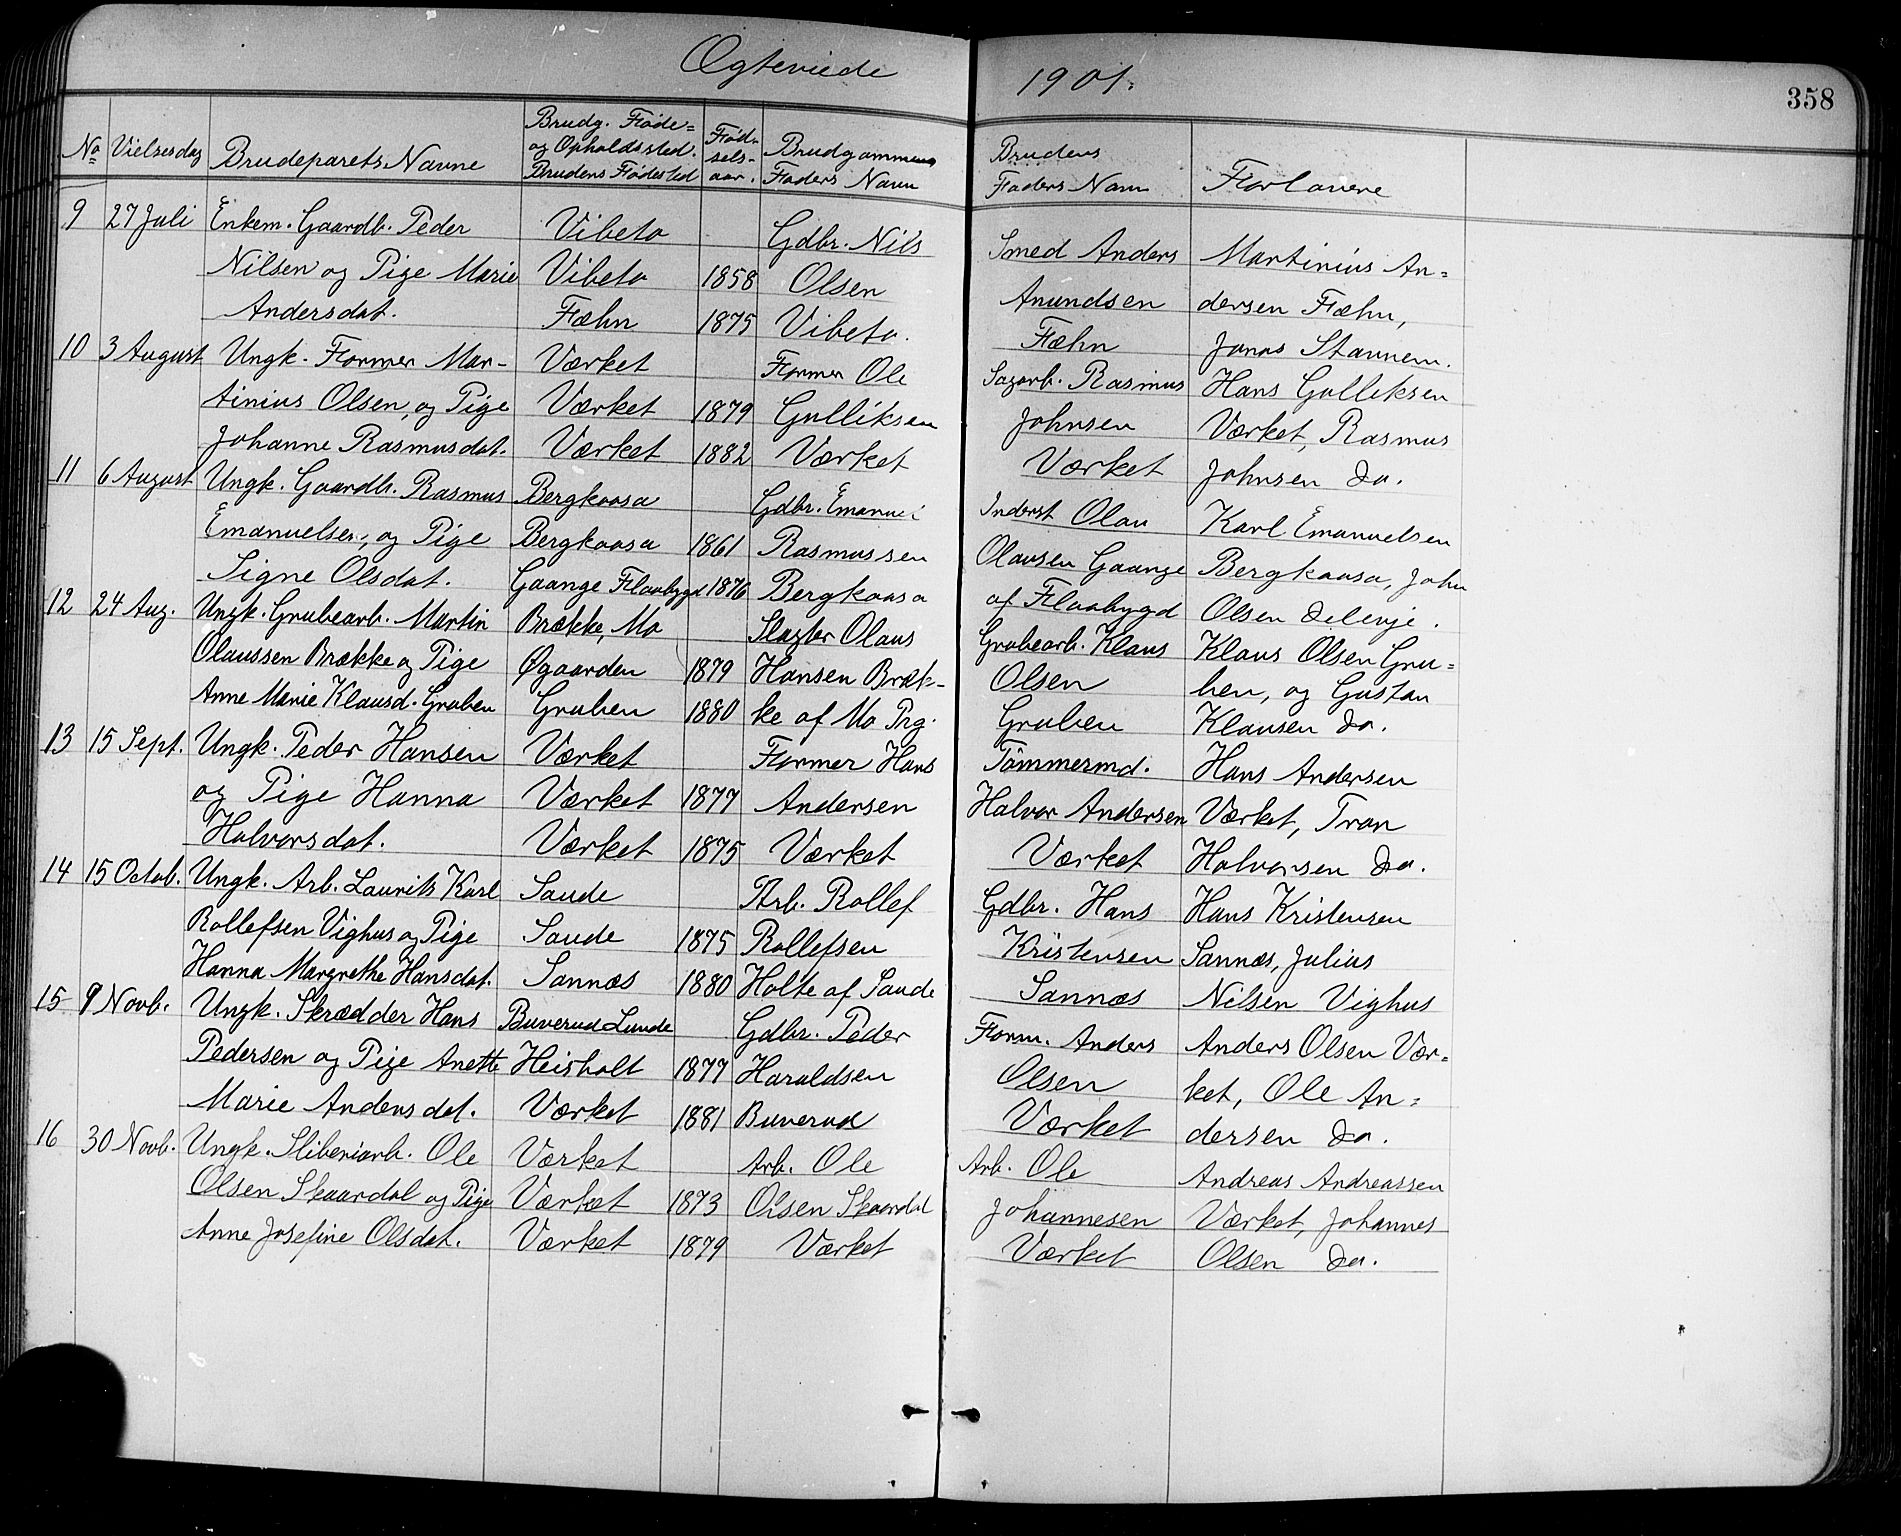 Ægteviede 1901.
358
No
Vielsesdag
Brudeparets Navne
Brudg. Føde=
og Opholdssted.
Brudens Fødested
Fød-
sels-
aar.
Brudgommens
Faders Navn
Brudens
Faders Navn
Forlovere
9 27 Juli Enkem. Gaardb. Peder Vibeto Gdbr. Nils Smed Anders Martinius An=
Nilsen og Pige Marie Vibeto 1858 Olsen Anundsen dersen Fæhn,
Andersdat. Fæhn 1875 Vibeto. Fæhn Jonas Stannem.
10 3 August Ungk. Former Mar- Værket Former Ole Sagarb. Rasmus Hans Gulliksen
tinius Olsen, og Pige Værket 1879 Gulliksen Johnsen Værket, Rasmus
Johanne Rasmusdat. Værket 1882 Værket Værket Johnsen do.
11 6 August Ungk. Gaardb. Rasmus Bergkaasa Gdbr. Emanuel Inderst Olau Karl Emanuelsen
Emanuelsen, og Pige Bergkaasa 1861 Rasmussen Olausen Gaange Bergkaasa, John
Signe Olsdat. Gaange Flaabygd 1876 Bergkaasa af Flaabygd Olsen
12 24 Aug. Ungk. Grubearb. Martin Brække, Mo Slagter Olaus Grubearb. Klaus Klaus Olsen Gru=
Olaussen Brække og Pige Øgaarden 1879 Hansen Bræk- Olsen ben, og Gustav
Anne Marie Klausd. Gruben Gruben 1880 ke af Mo Prg. Gruben Klausen do.
13 15 Sept. Ungk. Peder Hansen Værket Former Hans Tömmermd. Hans Andersen
og Pige Hanna Værket 1877 Andersen Halvor Andersen Værket, Tron
Halvorsdat. Værket 1875 Værket Værket Halvorsen do.
14 15 Octob. Ungk. Arb. Laurits Karl Saude Arb. Rollef Gdbr. Hans Hans Kristensen
Rollefsen Vighus og Pige Saude 1875 Rollefsen Kristensen Sannæs, Julius
Hanna Margrethe Hansdat. Sannæs 1880 Holte af Saude Sannæs Nilsen Vighus
15 9 Novb. Ungk. Skrædder Hans Buverud Lunde Gdbr. Peder Form. Anders Anders Olsen Vær=
Pedersen og Pige Anette Heisholt 1877 Haraldsen Olsen ket, Ole An=
Marie Andersdat. Værket 1881 Buverud Værket dersen do.
16 30 Novb. Ungk. Sliberiarb. Ole Værket Arb. Ole Arb. Ole Andreas Andreassen
Olsen Skaardal og Pige Værket 1873 Olsen Skaardal Johannesen Værket, Johannes
Anne Josefine Olsdat. Værket 1879 Værket Værket Olsen do.